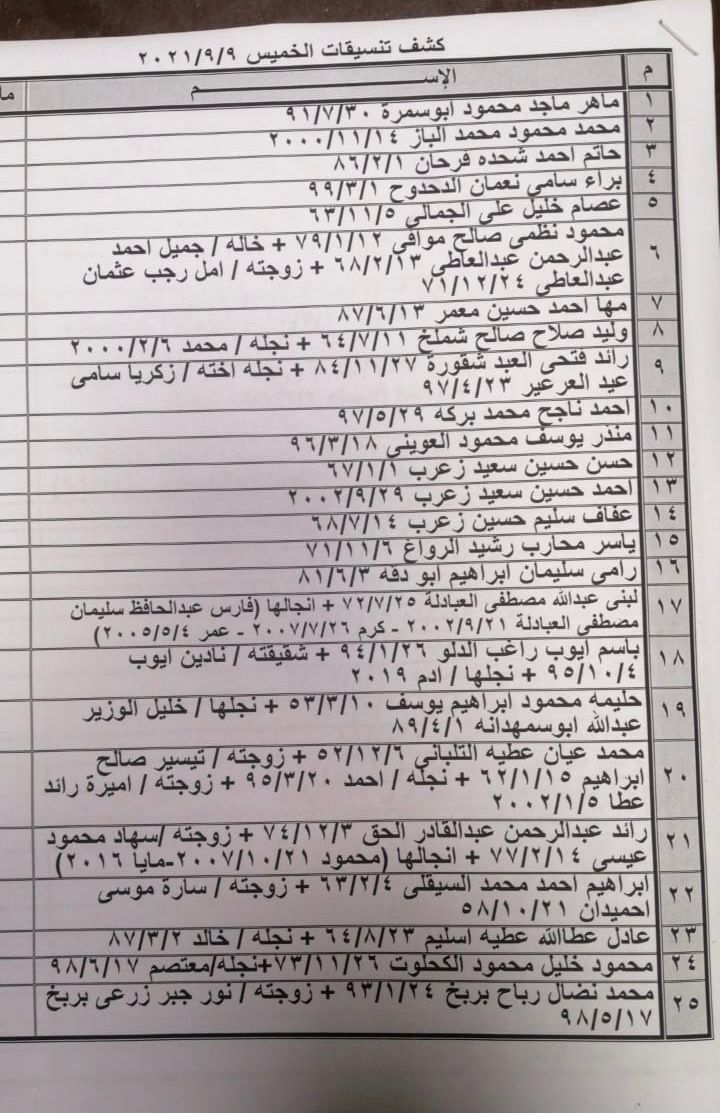 كشف تنسيقات الخميس ٢٠٢١/٩/٩
م الإســــــم ما
١ ماهر ماجد محمود ابوسمرة ٩١/٧/٣٠
٢ محمد محمود محمد الباز ٢٠٠٠/١١/١٤
٣ حاتم احمد شحده فرحان ٨٦/٢/١
٤ براء سامى نعمان الدحدوح ٩٩/٣/١
٥ عصام خليل على الجمالى ٦٣/١١/٥
محمود نظمى صالح موافى ٧٩/١/١٢ + خاله / جميل احمد
٦ عبدالرحمن عبدالعاطى ٦٨/٢/١٣ + زوجته / امل رجب عثمان
عبدالعاطى ٧١/١٢/٢٤
٧ مها احمد حسين معمر ٨٧/٦/١٣
٨ وليد صلاح صالح شملخ ٦٤/٧/١١ + نجله / محمد ٢٠٠٠/٢/٦
٩ رائد فتحى العبد شقورة ٨٤/١١/٢٧ + نجله اخته / زكريا سامى
عيد العرعير ٩٧/٤/٢٣
١٠ احمد ناجح محمد بركه ٩٧/٥/٢٩
١١ منذر يوسف محمود العوينى ٩٦/٣/١٨
١٢ حسن حسين سعيد زعرب ٦٧/١/١
١٣ احمد حسين سعيد زعرب ٢٠٠٢/٩/٢٩
١٤ عفاف سليم حسين زعرب ٦٨/٧/١٤
١٥ ياسر محارب رشيد الرواغ ٧١/١١/٦
١٦ رامى سليمان ابراهيم ابو دقه ٨١/٦/٣
١٧ لبنى عبدالله مصطفى العبادلة ٧٢/٧/٢٥ + انجالها (فارس عبدالحافظ سليمان
مصطفى العبادلة ٢٠٠٢/٩/٢١ - كرم ٢٠٠٧/٧/٢٦ - عمر ٢٠٠٥/٥/٤)
١٨ باسم ايوب راغب الدلو ٩٤/١/٢٦ + شقيقته / نادين ايوب
٩٥/١٠/٤ + نجلها / ادم ٢٠١٩
١٩ حليمه محمود ابراهيم يوسف ٥٣/٣/١٠ + نجلها / خليل الوزير
عبدالله ابوسمهدانه ٨٩/٤/١
محمد عيان عطيه التلبانى ٥٢/١٢/٦ + زوجته / تيسير صالح
٢٠ ابراهيم ٦٢/١/١٥ + نجله / احمد ٩٥/٣/٢٠ + زوجته / اميرة رائد
عطا ٢٠٠٢/١/٥
٢١ رائد عبدالرحمن عبدالقادر الحق ٧٤/١٢/٣ + زوجته /سهاد محمود
عيسى ٧٧/٢/١٤ + انجالها (محمود ٢٠٠٧/١٠/٢١-مايا ٢٠١٦)
٢٢ ابراهيم احمد محمد السيقلى ٦٣/٢/٤ + زوجته / سارة موسى
احميدان ٥٨/١٠/٢١
٢٣ عادل عطاالله عطيه اسليم ٦٤/٨/٢٣ + نجله / خالد ٨٧/٣/٢
٢٤ محمود خليل محمود الكحلوت ٧٣/١١/٢٦+نجله/معتصم ٩٨/٦/١٧
٢٥ محمد نضال رباح بربخ ٩٣/١/٢٤ + زوجته / نور جبر زرعى بربخ
٩٨/٥/١٧